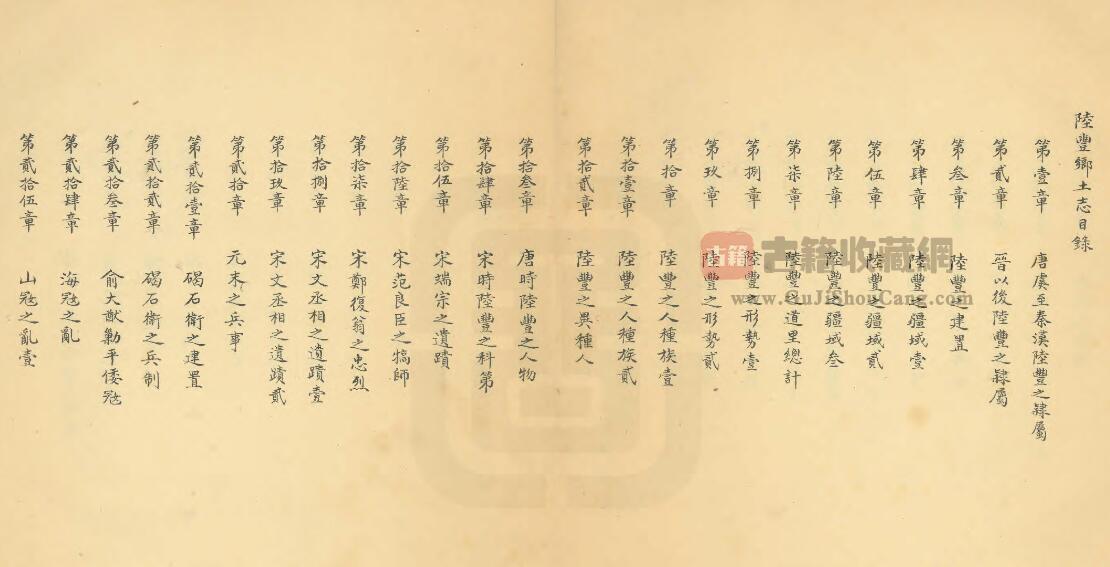 陸豐鄉土志目錄
第壹章 唐虞至秦漢陸豐之隸屬
第貳章 晉以後陸豐之隸屬
第叁章 陸豐之建置
第肆章 陸豐之疆域壹
第伍章 陸豐之疆域貳
第陸章 陸豐之疆域叁
第柒章 陸豐之道里總計
第捌章 陸豐之形勢壹
第玖章 陸豐之形勢貳
第拾章 陸豐之人種族壹
第拾壹章 陸豐之人種族貳
第拾貳章 陸豐之異種人
第拾叁章 唐時陸豐之人物
第拾肆章 宋時陸豐之科第
第拾伍章 宋端宗之遺蹟
第拾陸章 宋范良臣之犒師
第拾柒章 宋鄭復翁之忠烈
第拾捌章 宋文丞相之遺蹟壹
第拾玖章 宋文丞相之遺蹟貳
第貳拾章 元末之兵事
第貳拾壹章 碣石衛之建置
第貳拾貳章 碣石衛之兵制
第貳拾叁章 俞大猷勦平倭寇
第貳拾肆章 海寇之亂
第貳拾伍章 山寇之亂壹
古籍
古籍收藏網
www.GuJiShouCang.com